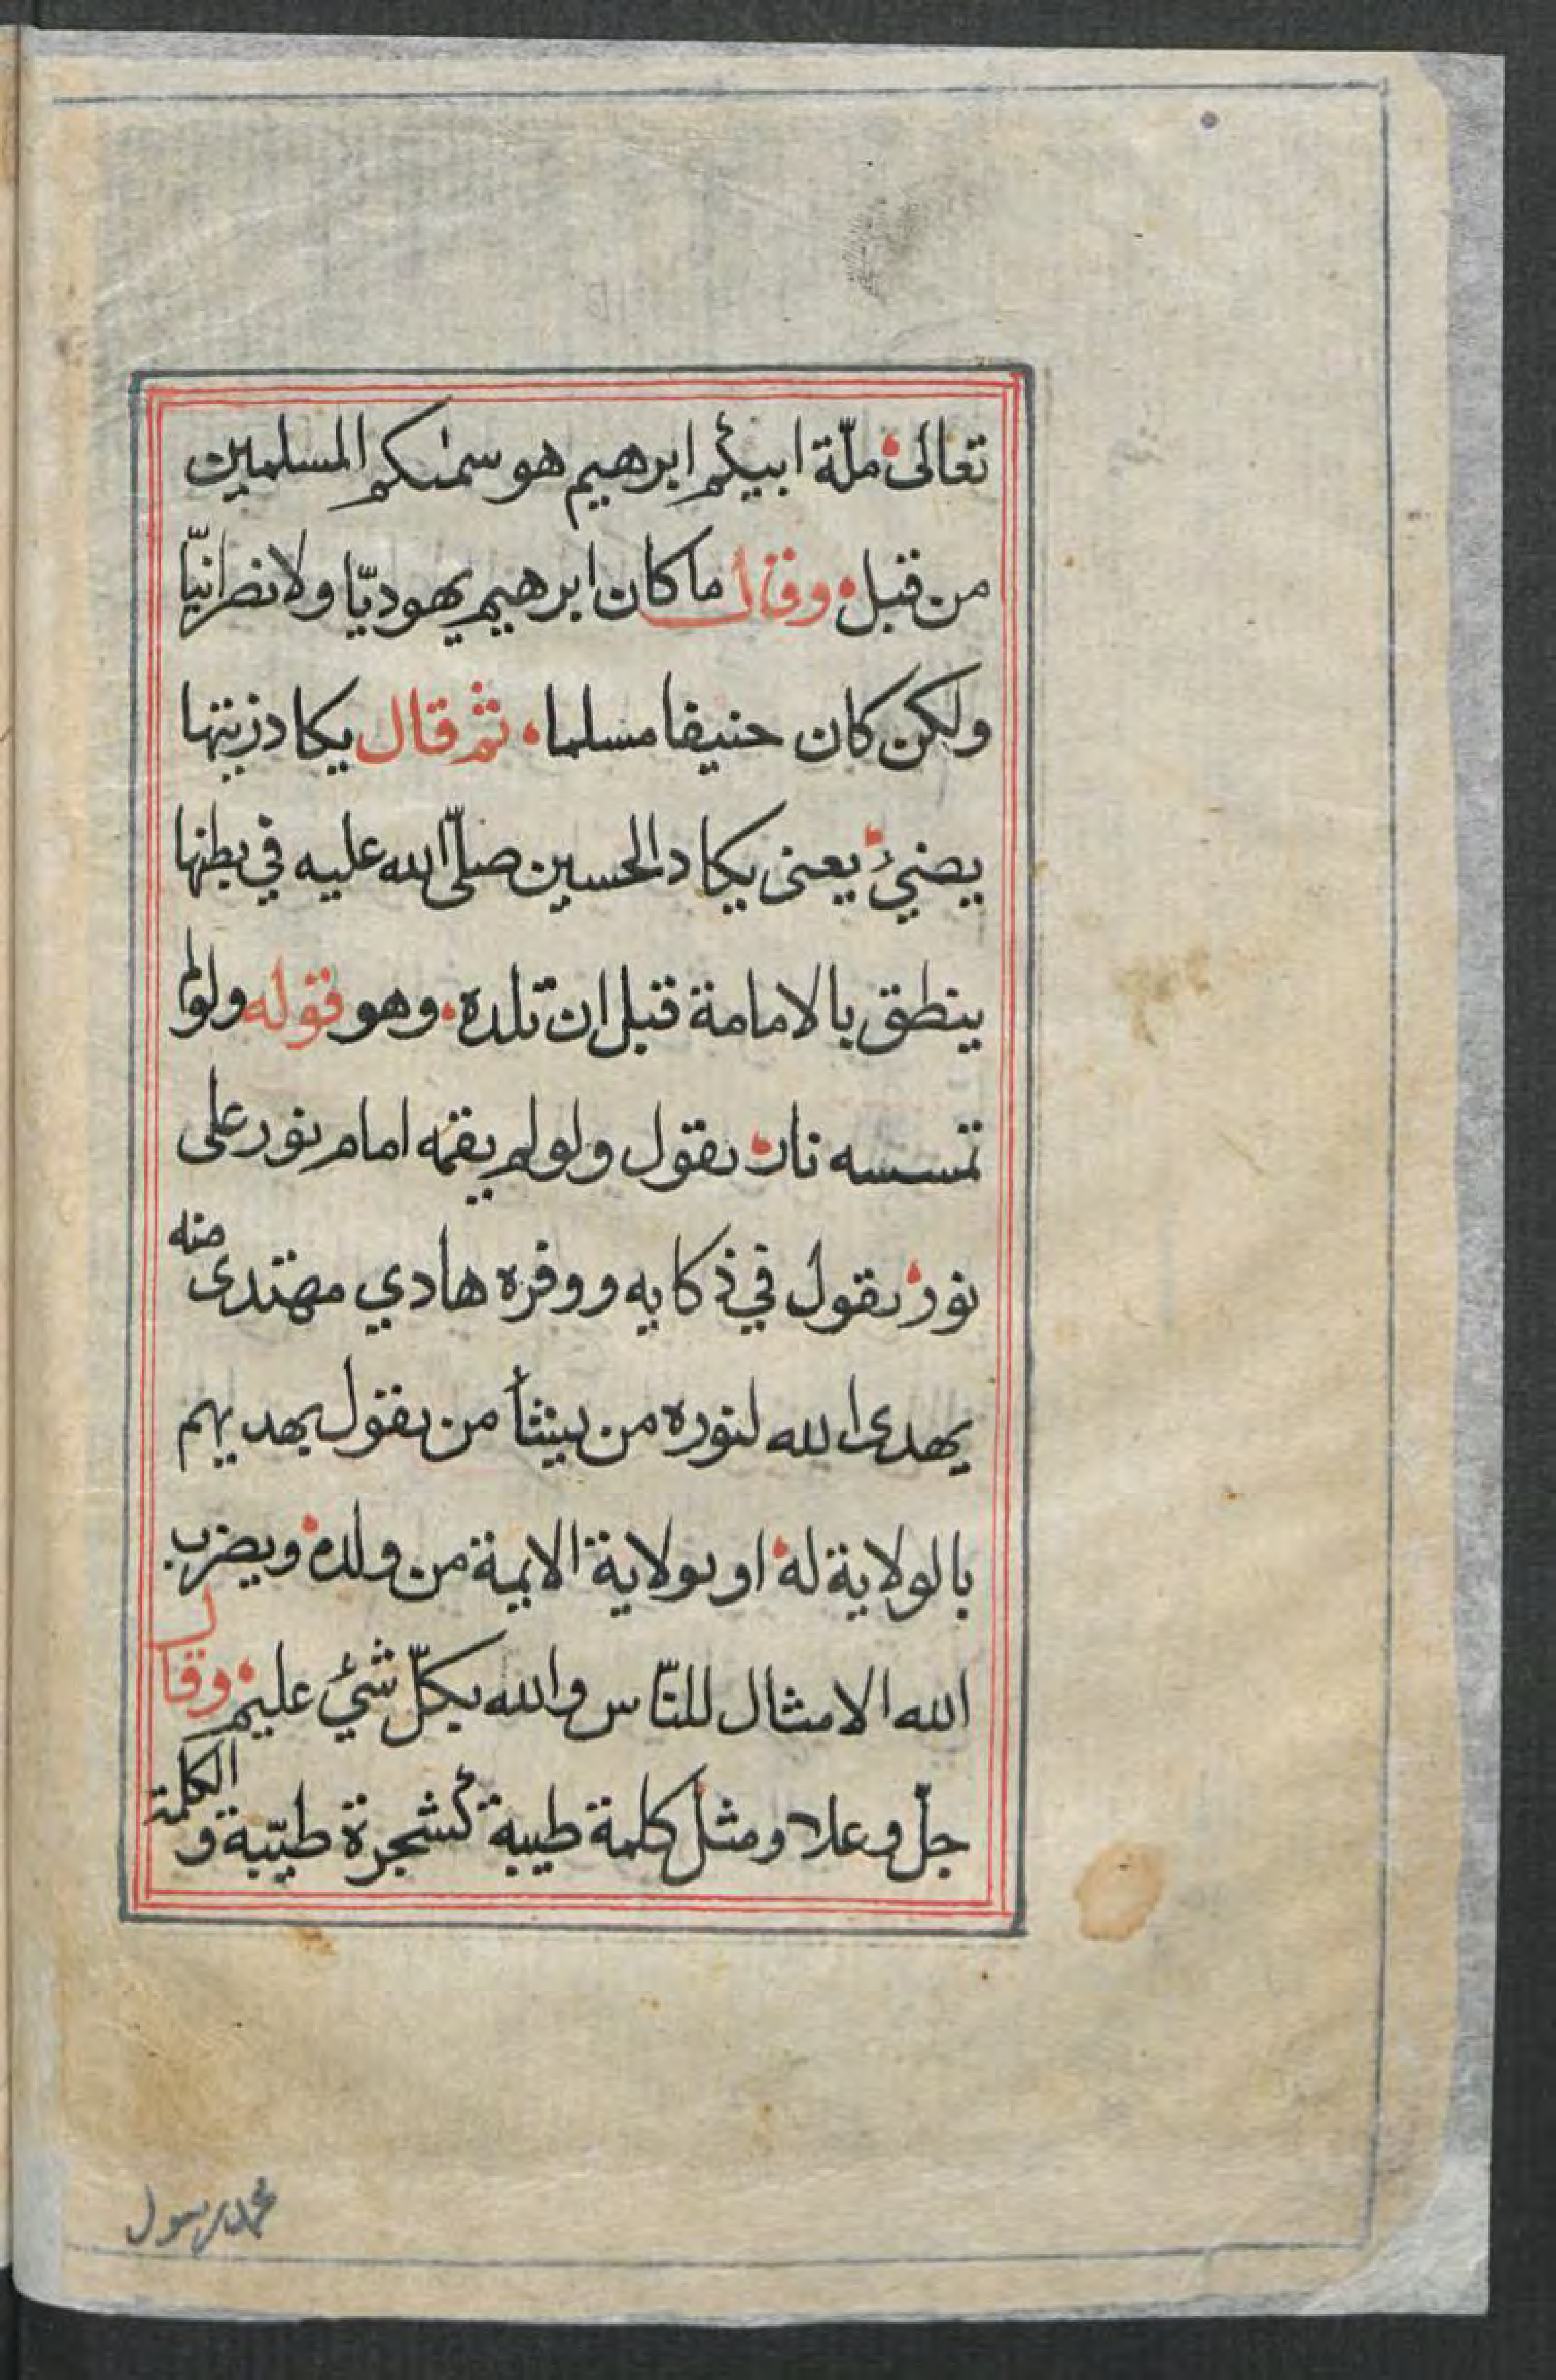 تعالى ملّة ابيكم ابرهيم هو سمىٰكم المسلمين
من قبل وقال ما كان ابرهيم يهوديّا ولا نصرانيّا
ولكن كان حنيفا مسلما ثم قال يكاد زيتها
يضيئ يعنى يكاد الحسين صلّى الله عليه في بطنها
ينطق بالامامة قبل ان تلده وهو قوله ولو لم
تمسسه نار يقول ولو لم يقمه امام نور على
نور يقول في ذكايه ووفره هادي مهتدى منه
يهدى الله لنوره من يشأ من يقول يهديهم
بالولاية له او بولاية الايمة من ولده ويضرب
الله الامثال للنّاس والله بكلّ شئ عليم وقال
جلّ وعلا ومثل كلمة طيبة كشجرة طيّبة و الكلمة
محمد رسول